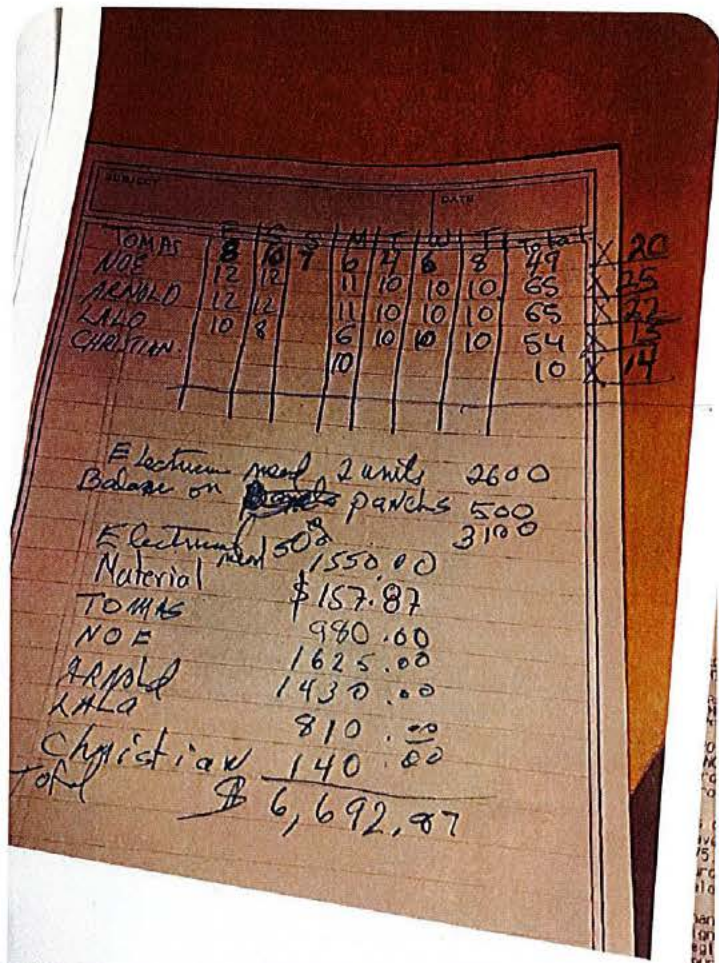 SUBJECT DATE
F S S M T W T Total
TOMAS 8 10 7 6 4 6 8 49 X 20
NOE 12 12 11 10 10 10 65 X 25
ARNALD 12 12 11 10 10 10 65 X 22
LALO 10 8 6 10 10 10 54 X 15
CHRISTIAN. 10 10 X 14
2 units 2600
Balance on panels 500
3100
50% 1550.00
Material $157.87
TOMAS 980.00
NOE 1625.00
ARNALD 1430.00
LALO 810.00
Christian 140.00
Total $6,692,87